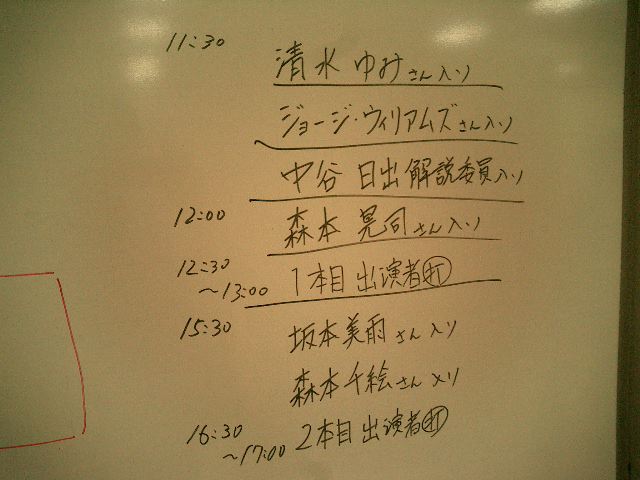 11:30 清水 ゆみさん入り
ジョージ・ウィリアムズさん入り
中谷 日出解説委員入り
12:00 森本 晃司さん入り
12:30 1本目 出演者㊓
～13:00
15:30 坂本美雨さん入り
森本千絵さん入り
16:30 2本目 出演者㊓
～17:00